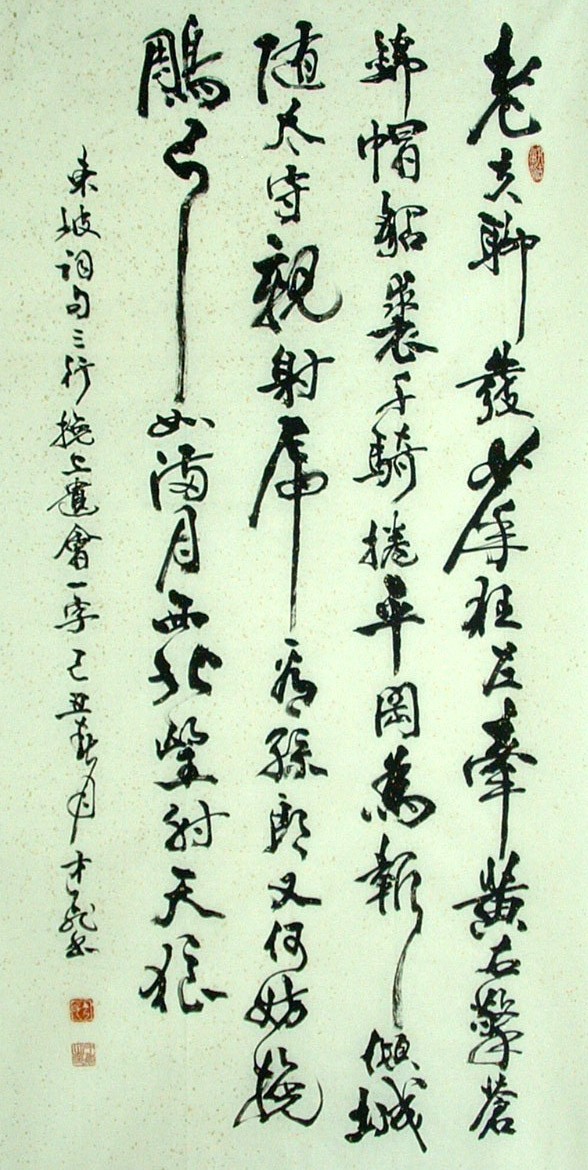 老夫聊發少年狂左牽黃右擎蒼
錦帽貂裘千騎捲平岡為報傾城
随太守親射虎看孫郎又何妨挽
鵰弓如滿月西北望射天狼
東坡詞句三行挽上遺會一字己丑春月才書